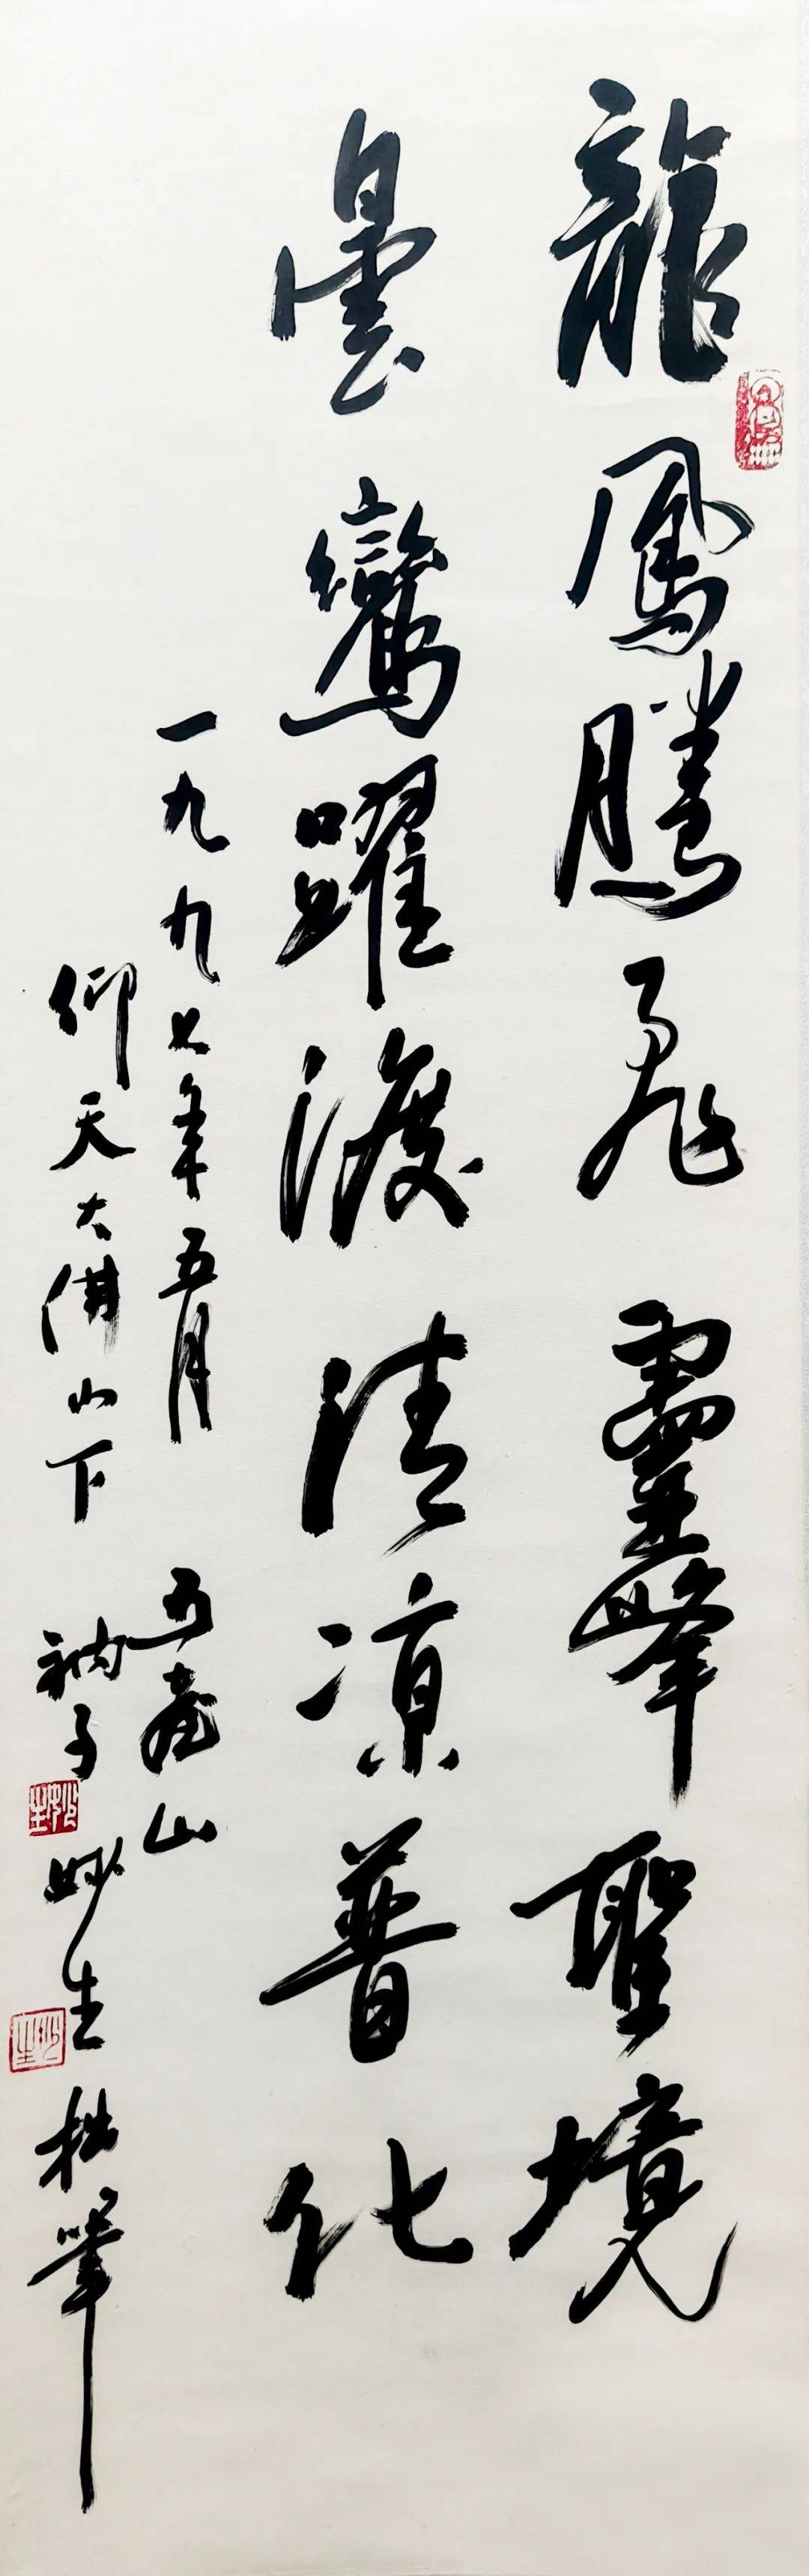 龍鳳騰飛靈峰聖境
曇鸞躍渡清凉普化
一九九七年五月 五臺山
仰天大佛山下 衲子妙生拙筆
妙生
妙生